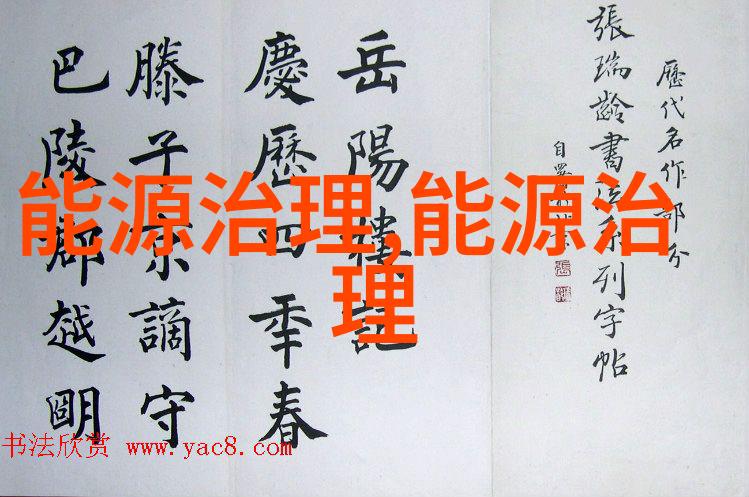 歷代名作部分
張瑞齡書法系列字帖
岳陽樓記
慶歷四年春
滕子京謫守
巴陵郡越明
能源治理,能源治
理
书法欣赏 www.yac8.com